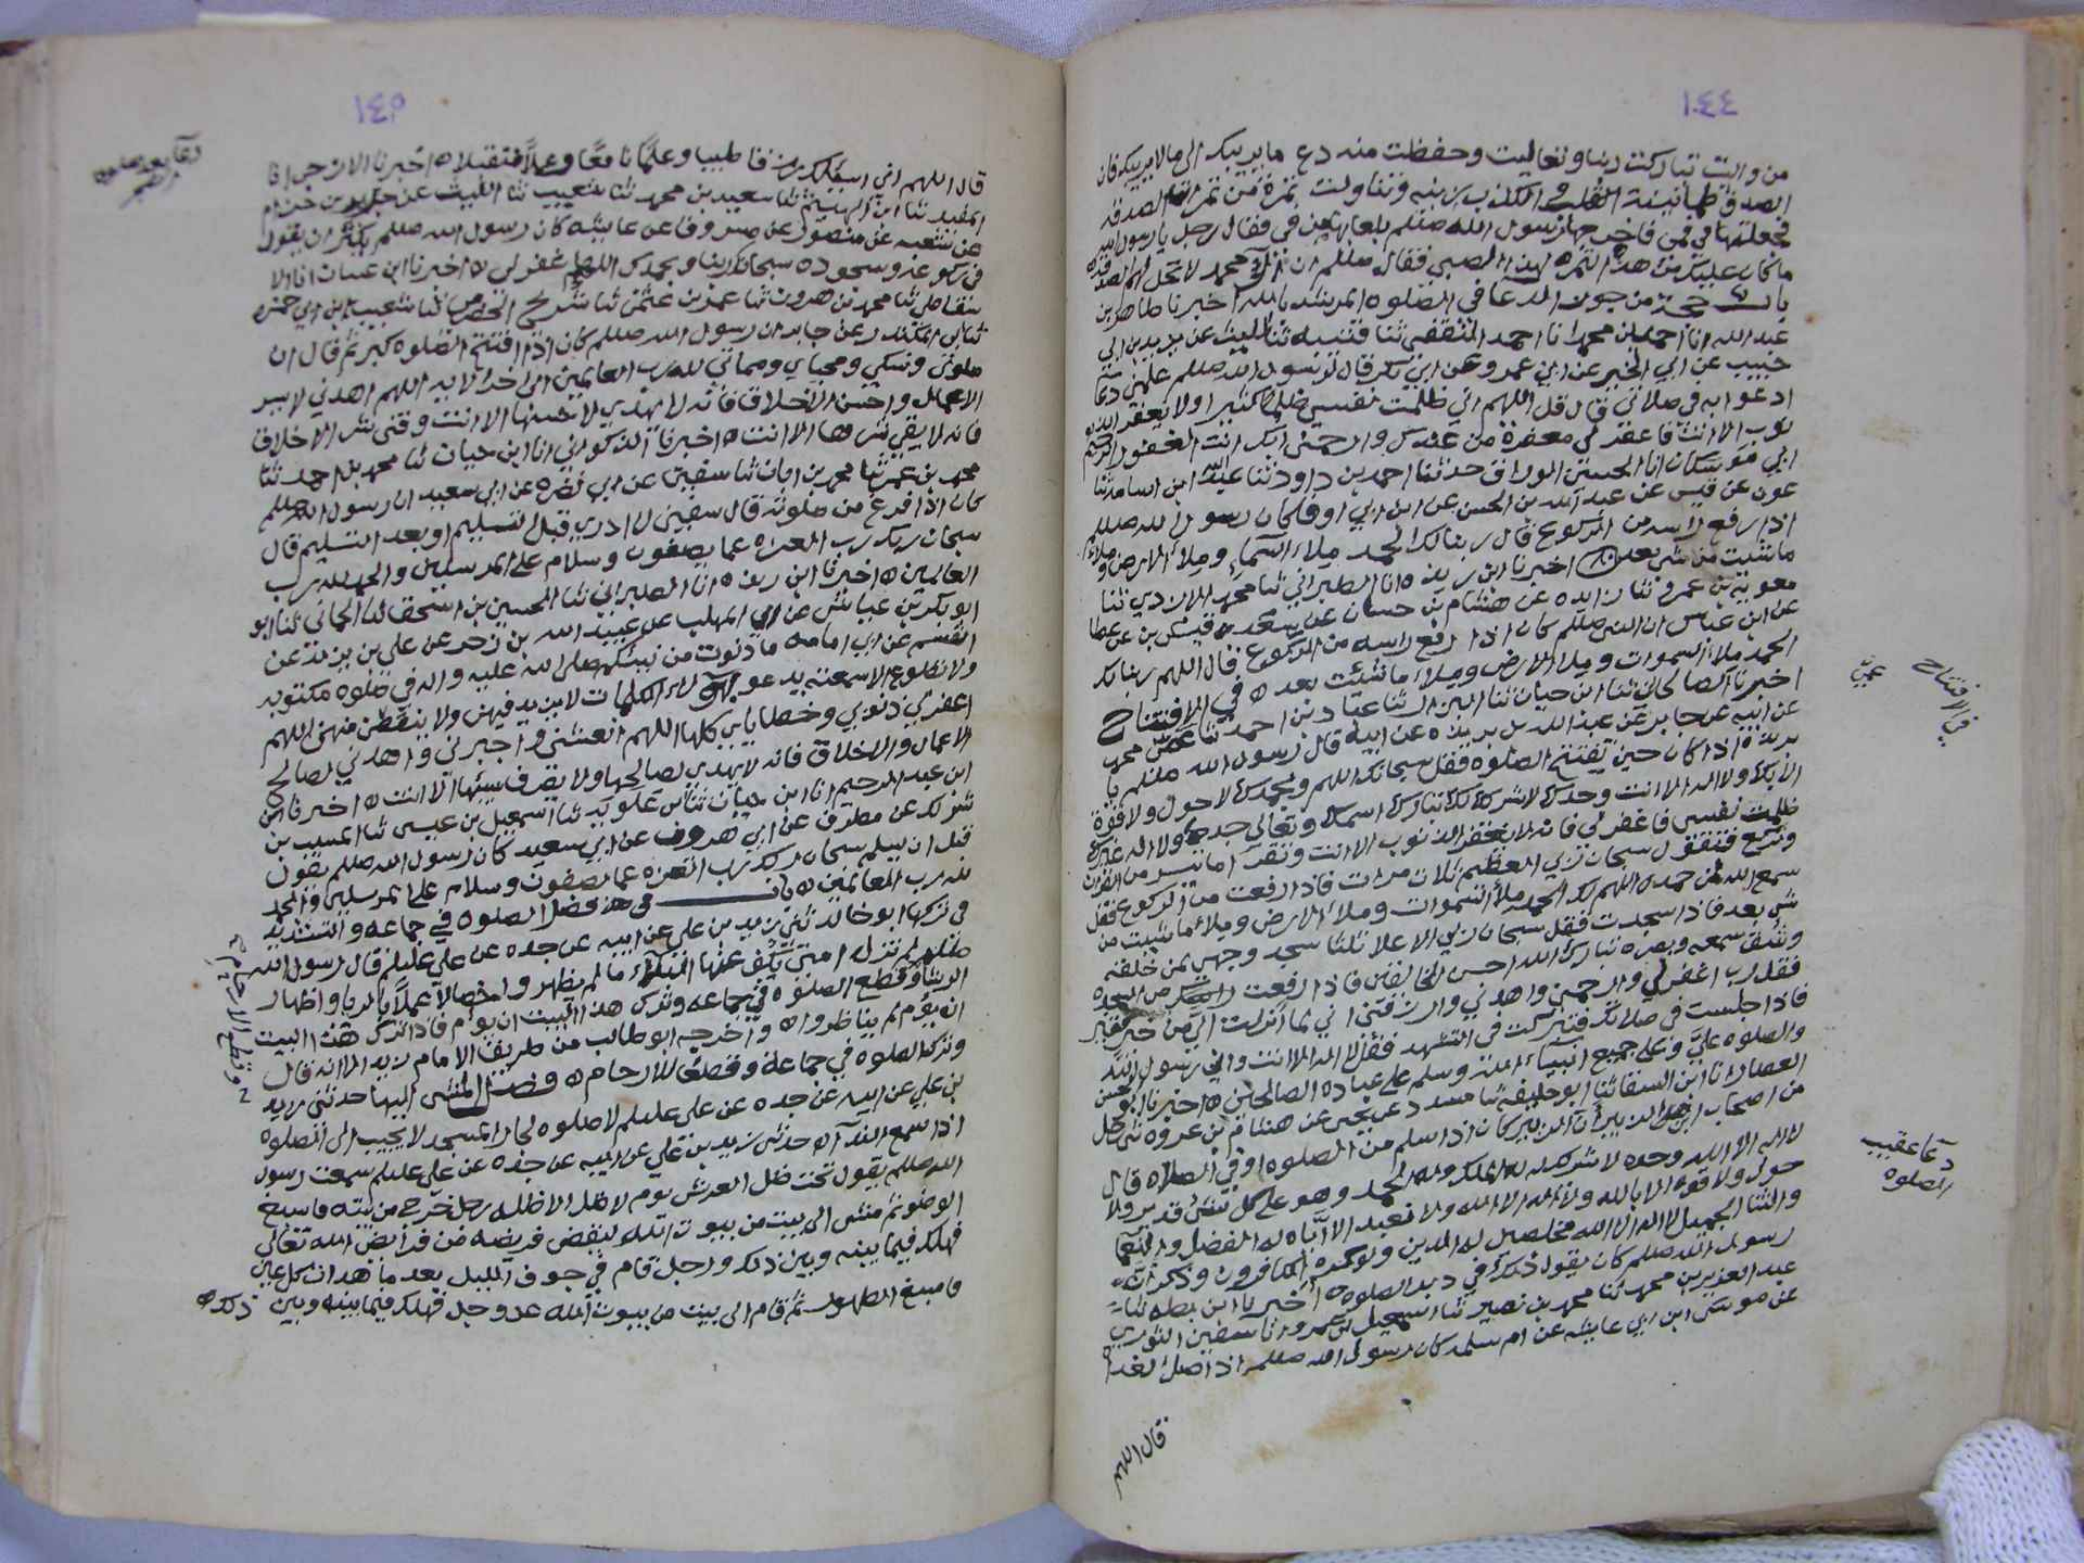 ١٤٤
من واليت تباركت ربنا وتعاليت وحفظت منه دع ما يريبك الى ما لا يريبك فان
الصدق طمانينة الكذب ريبه وتناولت تمرة من تمر الصدقه
فجعلتها في فمي فاخرجها رسول الله صللم بلعابها من في فقال رجل يا رسول الله
ما كان عليك من هذه التمره لهذا الصبي فقال صللم ان آل محمد لا تحل لهم الصدقه
باب من جوف الدعا في الصلوه اخبرنا طاهر بن
عبد الله انا احمد بن محمد انا احمد الثقفي ثنا قتيبه ثنا الليث عن يزيد بن ابي
حبيب عن ابي الخير عن ابن عمرو عن ابي بكر قال لرسول الله صللم علمني دعا
ادعوا به في صلاتي قال قل اللهم اني ظلمت نفسي ظلما كثيرا ولا يغفر الذنوب
الا انت فاغفر لي مغفرة من عندك وارحمني انك انت الغفور الرحيم
انا الحسن الوراق حدثنا احمد بن داود ثنا عبد الله ابن اسامه ثنا
عون عن قيس عن عبد الله بن الحسن عن ابن ابي اوفا كان رسول الله صللم
اذا رفع راسه من الركوع قال ربنا لك الحمد ملاء السماء وملاء الارض وملاء
ما شئت من شي بعد اخبرنا ابن ريذه انا الطبراني ثنا محمد الازدي ثنا
معويه بن عمرو ثنا زايده عن هشام بن حسان عن قيس بن سعد عن عطا
عن ابن عباس ان النبي صللم كان اذا رفع راسه من الركوع قال اللهم ربنا لك
الحمد ملاء السموات وملاء الارض وملاء ما شئت بعد ه في الافتتاح
اخبرنا الصالحاني ثنا ابن حيان ثنا البزار ثنا عباد بن احمد ثنا عمي محمد
عن ابيه عن جابر عن عبد الله بن بريده عن ابيه قال رسول الله صللم يا
بريده اذا كان حين تفتتح الصلوه فقل سبحانك اللهم وبحمدك لا حول ولا قوة
الا بك ولا اله الا انت وحدك لا شريك لك تبارك اسمك وتعالى جدك ولا اله غيرك
ظلمت نفسي فاغفر لي فانه لا يغفر الذنوب الا انت وتقرا ما تيسر من القران
وتركع فتقول سبحان ربي العظيم ثلاث مرات فاذا رفعت من الركوع فقل
سمع الله لمن حمده اللهم لك الحمد ملاء السموات وملاء الارض وملاء ما شيت من
شي بعد فاذا سجدت فقل سبحان ربي الاعلا ثلثا سجد وجهي لمن خلقه
وشق سمعه وبصره تبارك الله احسن الخالقين فاذا رفعت راسك من السجده
فقل رب اغفر لي وارحمني واهدني وارزقني اني لما انزلت الي من خير فقير
فاذا جلست في صلاتك فتبركت في التشهد فقل لا اله الا انت واني رسول الله
والصلوه علي وعلى جميع انبياء الله وسلم على عباده الصالحين ه اخبرنا ابو الحسن
العصار انا ابن السقا ثنا ابو خليفه ثنا مسدد عن يحيى عن هشام بن عروه ثنى رجل
من اصحاب ابن الزبير ان ابن الزبير كان اذا سلم من الصلوه او في الصلاه قال
لا اله الا الله وحده لا شريك له له الملك وله الحمد وهو على كل شي قدير ولا
حول ولا قوة الا بالله ولا اله الا الله ولا نعبد الا اياه له الفضل وله النعما
والثنا الجميل لا اله الا الله مخلصين له الدين ولو كره الكافرون وذكر ان
رسول الله صللم كان يقول ذلك في دبر الصلوه ه اخبرنا ابن بطه ثنا
عبد العزيز بن محمد ثنا محمد بن نصير ثنا اسمعيل بن عمرو ثنا سفين الثوري
عن موسى ابن ابي عايشه عن ام سلمه كان رسول الله صللم اذا صلى الغداه
قال اللهم
في الافتتاح
عمي
دعا عقيب
الصلوه
١٤٥
قال اللهم اني اسيلك رزقا طيبا وعلما نافعا وعملا متقبلا ه اخبرنا الازجي انا
المفيد ثنا ابن الهيثم ثنا سعيد بن محمد ثنا شعيب ثنا الليث عن جرير بن حزام
عن شعبه عن منصور عن مسروق عن عايشه كان رسول الله صللم يكثر ان يقول
في ركوعه وسجوده سبحانك ربنا وبحمدك اللهم اغفر لي ه اخبرنا ابن غسان انا
ثنا محمد بن هرون ثنا عمرو بن عثمن ثنا شريح ثنا شعيب بن ابي حمزه
ثنا ابن المنكدر عن جابر ان رسول الله صللم كان اذا افتتح الصلوه كبر ثم قال ان
صلوتي ونسكي ومحياي ومماتي لله رب العالمين الى اخر الايه اللهم اهدني لاحسن
الاعمال واحسن الاخلاق فانه لا يهدي لاحسنها الا انت وقني شر الاخلاق
فانه لا يقي شرها الا انت ه اخبرنا الذكواني انا ابن حيان ثنا محمد بن احمد ثنا
محمد بن عمر ثنا محمد بن ابان ثنا سفين عن ابي نضره عن ابي سعيد ان رسول الله صللم
كان اذا فرغ من صلوته قال سفين لا ادري قبل التسليم او بعد التسليم قال
سبحان ربك رب العزه عما يصفون وسلام على المرسلين والحمد لله رب
العالمين ه اخبرنا ابن ريذه انا الطبراني ثنا الحسين بن اسحق ثنا الحماني ثنا ابو
ابو بكر بن عياش عن ابي المهلب عن عبيد الله بن زحر عن علي بن يزيد عن
القسم عن ابي امامه ما دنوت من نبيكم صلى الله عليه واله في صلوه مكتوبه
ولا تطوع الا سمعته يدعو بهؤلاء الكلمات لا يزيد فيهن ولا ينقص منهن اللهم
اغفر لي ذنوبي وخطاياي كلها اللهم انعشني واجبرني واهدني لصالح
الاعمال والاخلاق فانه لا يهدي لصالحها ولا يصرف سيئها الا انت ه اخبرنا ابن
ابن عبد الرحيم انا ابن حيان ثنا ابن علويه ثنا اسمعيل بن عيسى ثنا المسيب بن
شريك عن مطرف عن ابي هروف عن ابي سعيد كان رسول الله صللم يقول
قبل ان يسلم سبحان ربك رب العزه عما يصفون وسلام على المرسلين والحمد
لله رب العالمين ه باب في فضل الصلوه في جماعه والتشديد
في تركها ابو خالد ثنى زيد بن علي عن ابيه عن جده عن علي عليلم قال رسول الله
صللم لم تزل امتي يكف عنها البلاء ما لم يظهروا خصالا عملا بالربا واظهار
الرشا وقطع الصلوه في جماعه وترك هذا البيت ان يؤم فاذا ترك هذا البيت
ان يؤم لم يناظروا ه واخرجه ابو طالب من طريق الامام زيد الا انه قال
وترك الصلوه في جماعة وقطعا للارحام ه وفضل المشي اليها حدثني زيد
بن علي عن ابيه عن جده عن علي عليلم لا صلوه لجار المسجد لا يجيب الى الصلوه
اذا سمع الندآ ه حدثنى زيد بن علي عن ابيه عن جده عن علي عليلم سمعت رسول
الله صللم يقول تحت ظل العرش يوم لا ظل الا ظله رجل خرج من بيته فاسبغ
الوضو ثم مشى الى بيت من بيوت الله ليقضي فريضه من فرايض الله تعالى
فهلك فيما بينه وبين ذلك ورجل قام في جوف الليل بعد ما هدات كل عين
فاسبغ الطهور ثم قام الى بيت من بيوت الله عز وجل فهلك فيما بينه وبين ذلك ه
دعا بعد صلوه
الفجر
وقطع الارحام